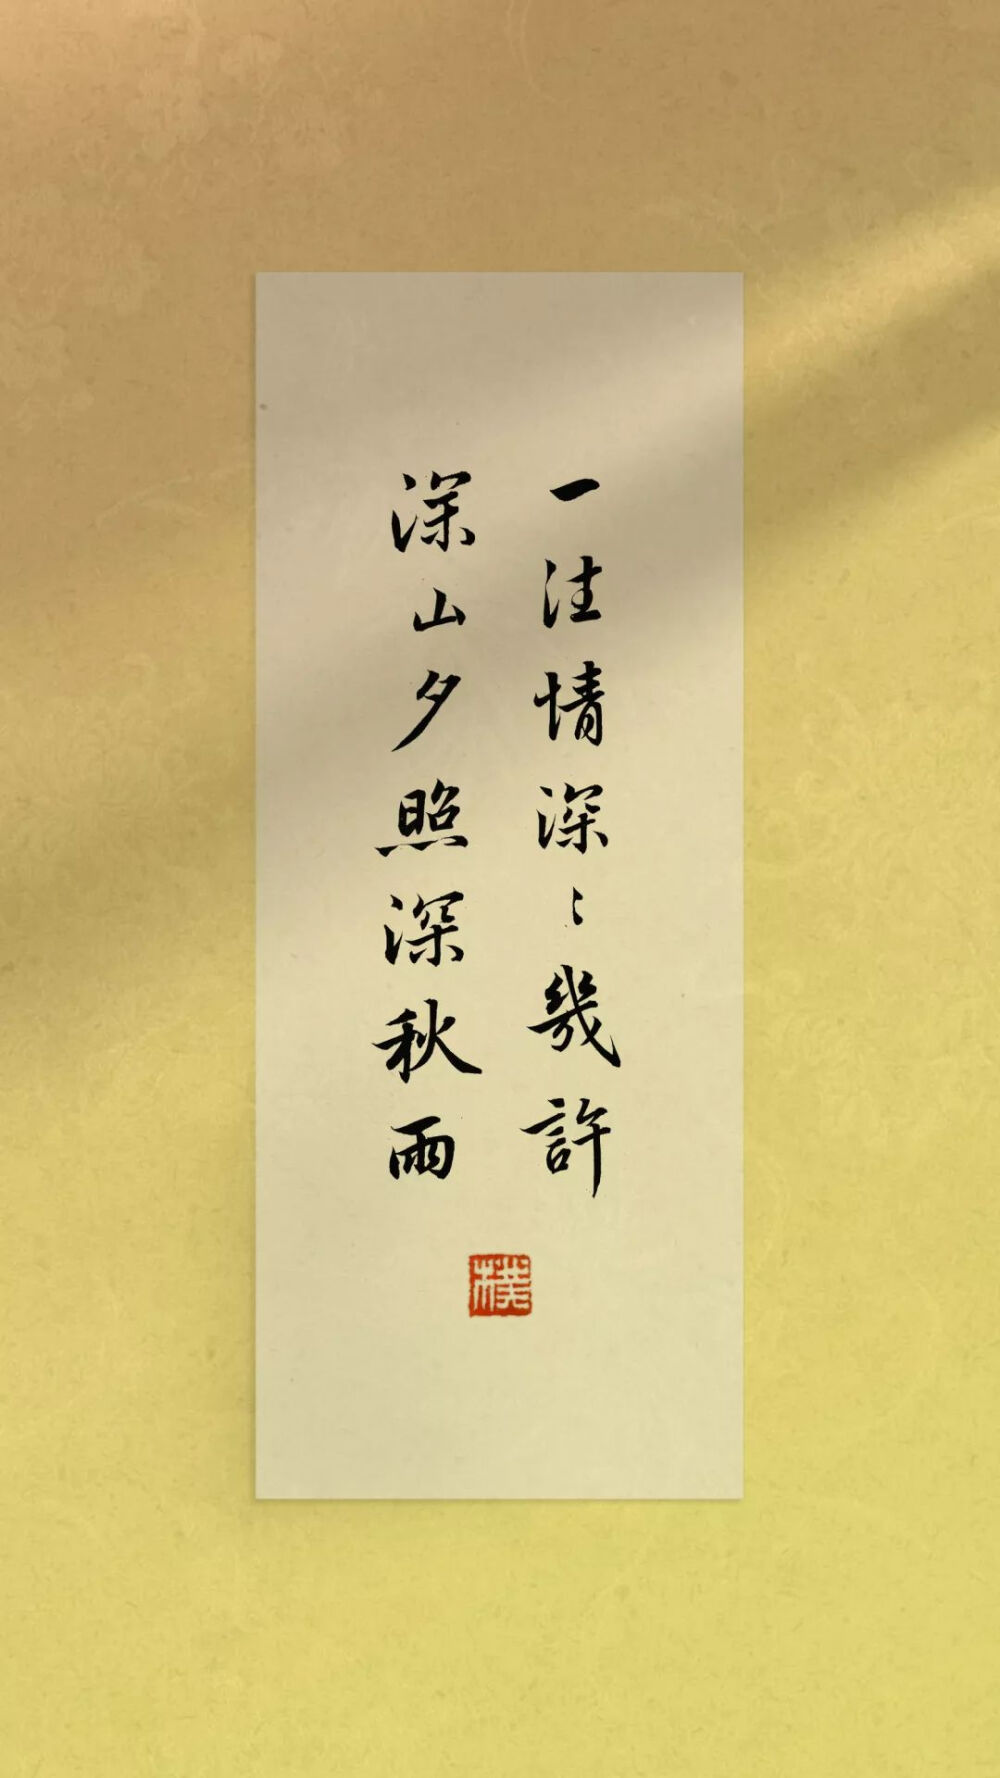 一往情深〻幾許
深山夕照深秋雨
樸